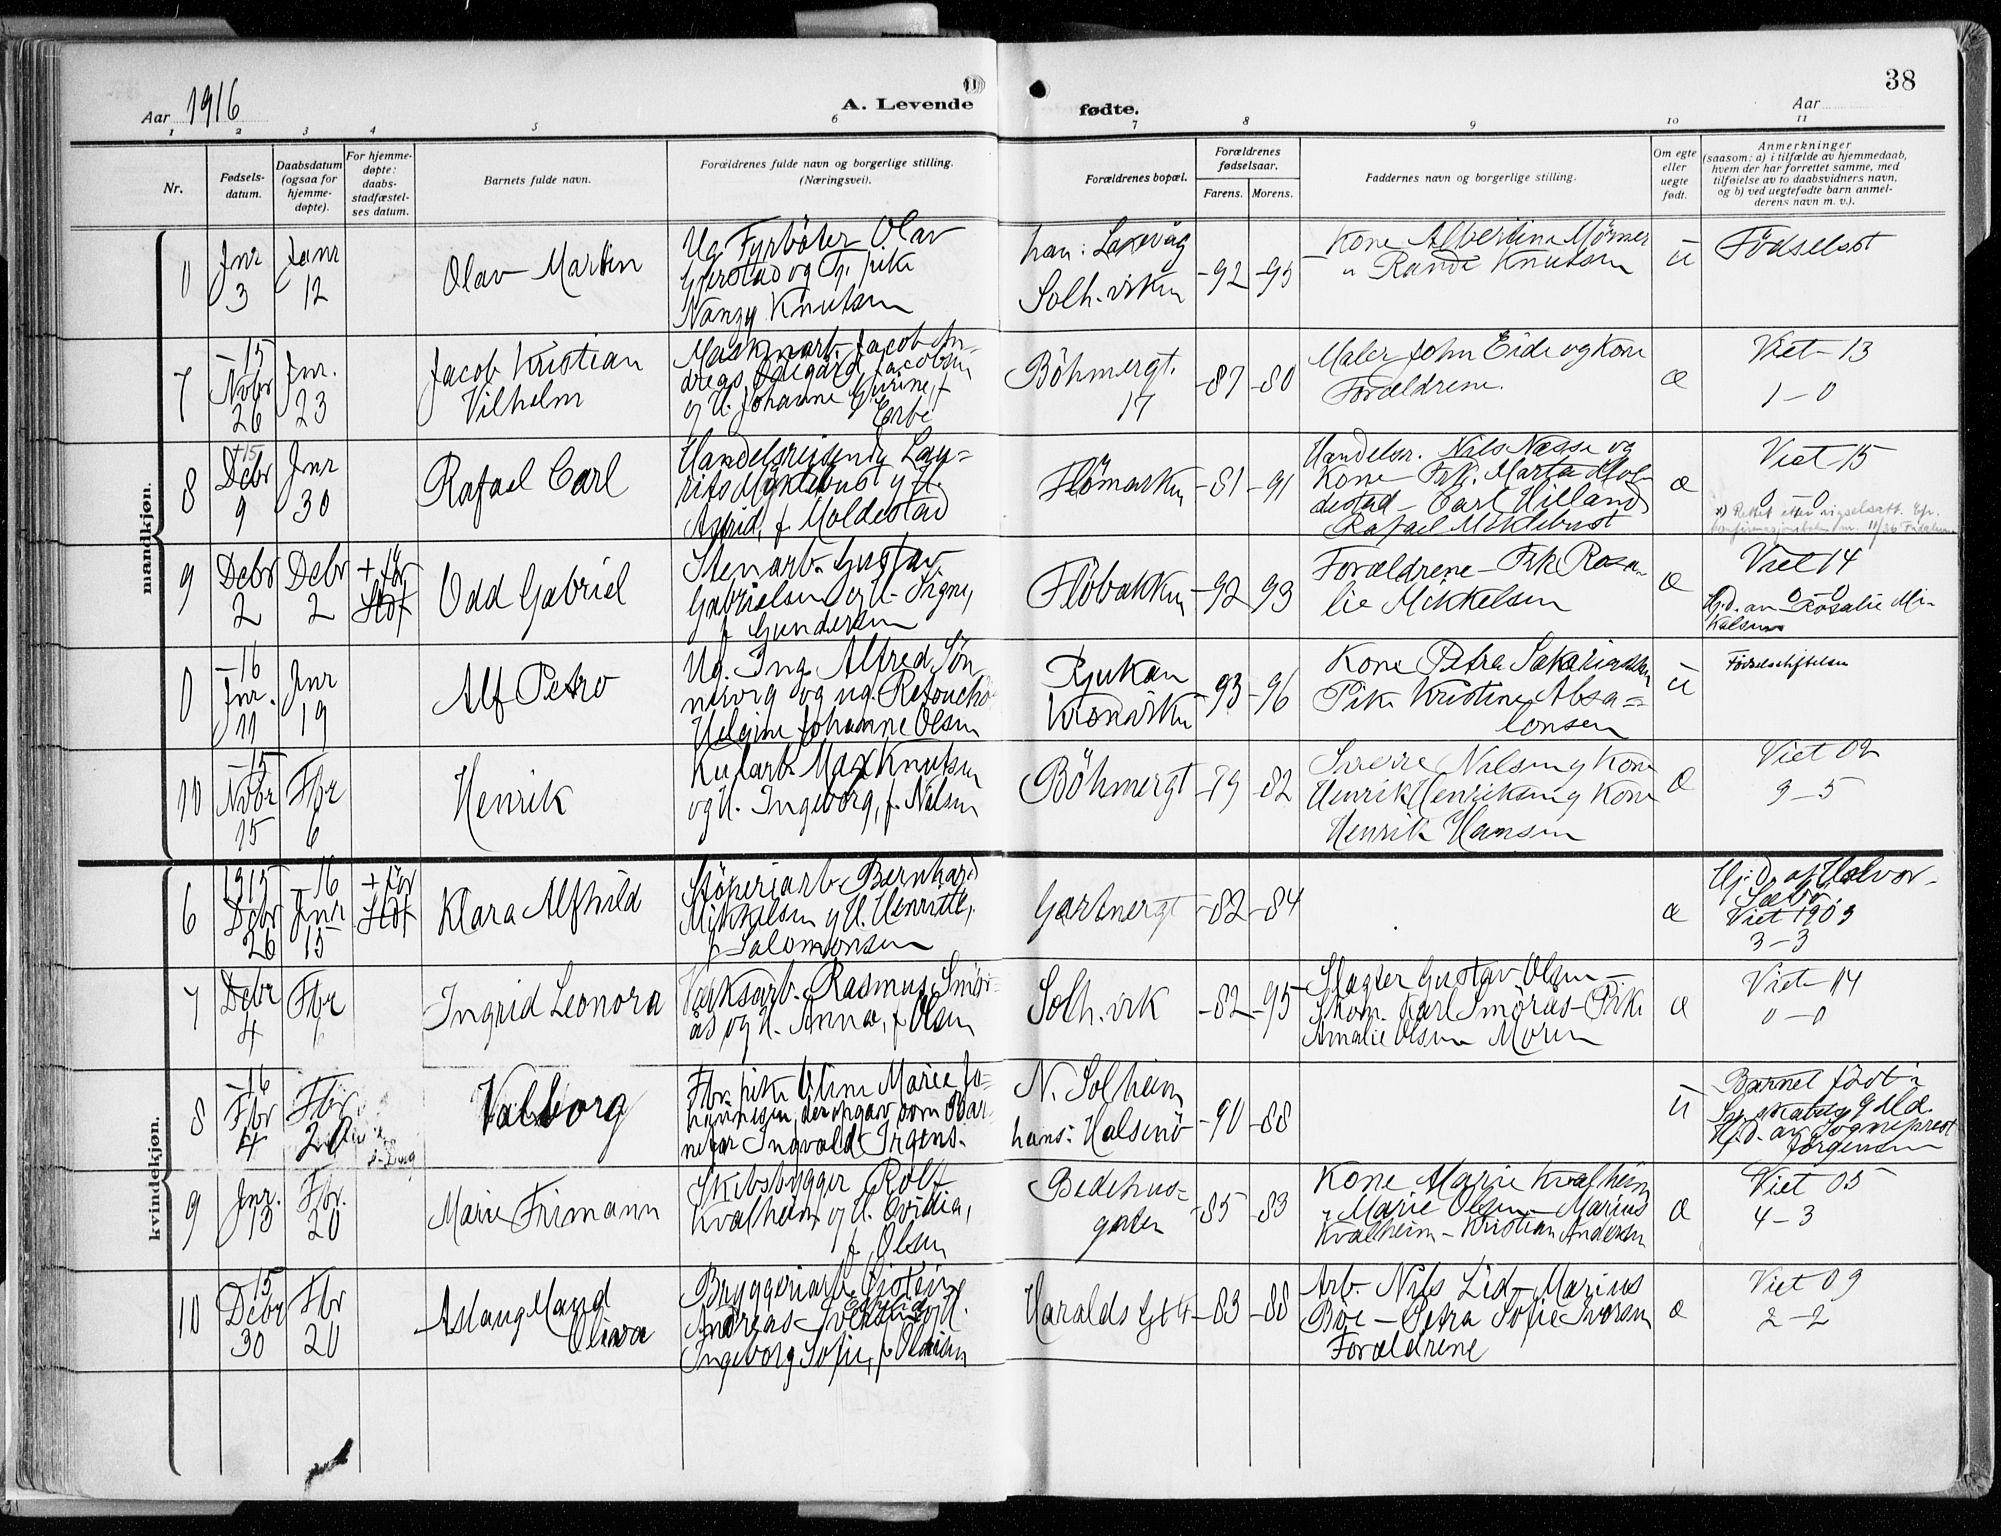 Aar 1916
A. Levende
fødte.
Aar
38
1 2 3 4 5 6 7 8 9 10 11
Nr.
Fødsels-
datum.
Daabsdatum
(ogsaa for
hjemme-
døpte).
For hjemme-
døpte:
daabs-
stadfæstel-
ses datum.
Barnets fulde navn.
Forældrenes fulde navn og borgerlige stilling.
(Næringsvei).
Forældrenes bopæl.
Forældrenes
fødselsaar.
Farens. Morens.
Faddernes navn og borgerlige stilling.
Om egte
eller
uegte
født.
Anmerkninger
(saasom: a) i tilfælde av hjemmedaab,
hvem der har forrettet samme, med
tilføielse av to daabsvidners navn,
og b) ved uegtefødte barn anmel-
derens navn m. v.).
mandkjøn.
0
Jnr
3
Janr
12
Olav Martin
Ug. Fyrbøter Olav
Gjerstad og Fr. pike
Nanzy Knutsen
han: Laxevåg
Solh.viken
-92 -95
Kone Albertine Mørner
" Randi Knutsen
ü
Fødselsst
7
-15
Novbr
26
Jnr.
23
Jacob Kristian
Vilhelm
Maskinarb. Jacob An-
dreas Ødegård Jacobsen
og H. Johanne Gurine, f
Erbe
Böhmergt.
17
-87 -80
Maler John Eide og Kone
Forældrene.
æ
Viet 13
1-0
8
-15
Debr
9
Jnr
30
Rafael Carl
Handelsreisende Lau-
rits Myklebust og H.
Astrid, f Moldestad
Flömarken
-81 -91
Handelsr. Nils Næsse og
Kone - Frk. Marta Mol-
destad - Carl Hilland
Rafael Miklebust
æ
Viet 15
0-0
9
Debr
2
Debr
2
+ før
Stdf
Odd Gabriel
Stenarb. Gustav
Gabrielsen og H. Signe,
f Gundersen
Flöbakken
-92 93
Forældrene - Frk Rosa-
lie Mikkelsen
æ
Viet 14
0-0
Hj.D. av Rosalie Mi-
kalsen
0
-16
Jnr.
11
Jnr
19
Alf Petro
Ug. Ing. Alfred Søn-
nervig og ug. Retouchö
Helgine Johanne Olsen
Rjukan
Kronviken
-93 -96
Kone Petra Sakariassen
Pike Kristine Absa-
lonsen
ü
Fødselsstiftelsen
10
-15
Novbr
15
Fbr
6
Henrik
Kularb. Max Knutsen
og H. Ingeborg, f. Nilsen
Böhmergt
-79 -82
Sverre Nilsen og Kone
Henrik Henriksen og Kone
Henrik Hansen
æ
Viet 02
9-5
kvindekjøn.
6
1915
Debr
26
-16
Jnr
15
+ før
Stdf
Klara Alfhild
Støperiarb. Bernhard
Mikkelsen og H. Henritte,
f Salomonsen
Gartnergt
-82 -84
æ
Hj.D. af Halvor
Sæbø.
Viet 1903
3-3
7
Debr
4
Fbr
6
Ingrid Leonora
Værksarb. Rasmus Smör-
ås og H. Anna, f Olsen
Solh.vik
-82 -95
Slagter Gustav Olsen -
Skom. Karl Smörås - Pike
Amalie Olsen Moren
æ
Viet 14
0-0
8
-16
Fbr
4
Fbr
20
Valborg
Fbr. pike Oline Marie Jo-
hannesen, der opgav som Bar-
nefar Ingvald Irgens.
N. Solheim
hans: Halsnö
-90 -88
ü
Barnet født i
9 Md.
Hj.D. av Sogneprest
Jørgensen
9
Jnr.
13
Fbr.
20
Marie Frimann
Skibsbygger Rolf
Kvalheim og H. Ovidia,
f. Olsen
Bedehus-
gaten
-85 -83
Kone Marie Kvalheim
" Marie Olsen - Marius
Kvalheim - Kristian Andersen
æ
Viet 05
4-3
10
15
Debr
30
Fbr
20
Aslaug Maud
Oliva
Bryggeriarb. Öistein
Andreas Iversen og H.
Ingeborg Sofie, f
Haralds gt 4
-83 -88
Arb. Nils Lid - Marius
Böe - Petra Sofie Iversen
Forældrene
æ
Viet 09
2-2